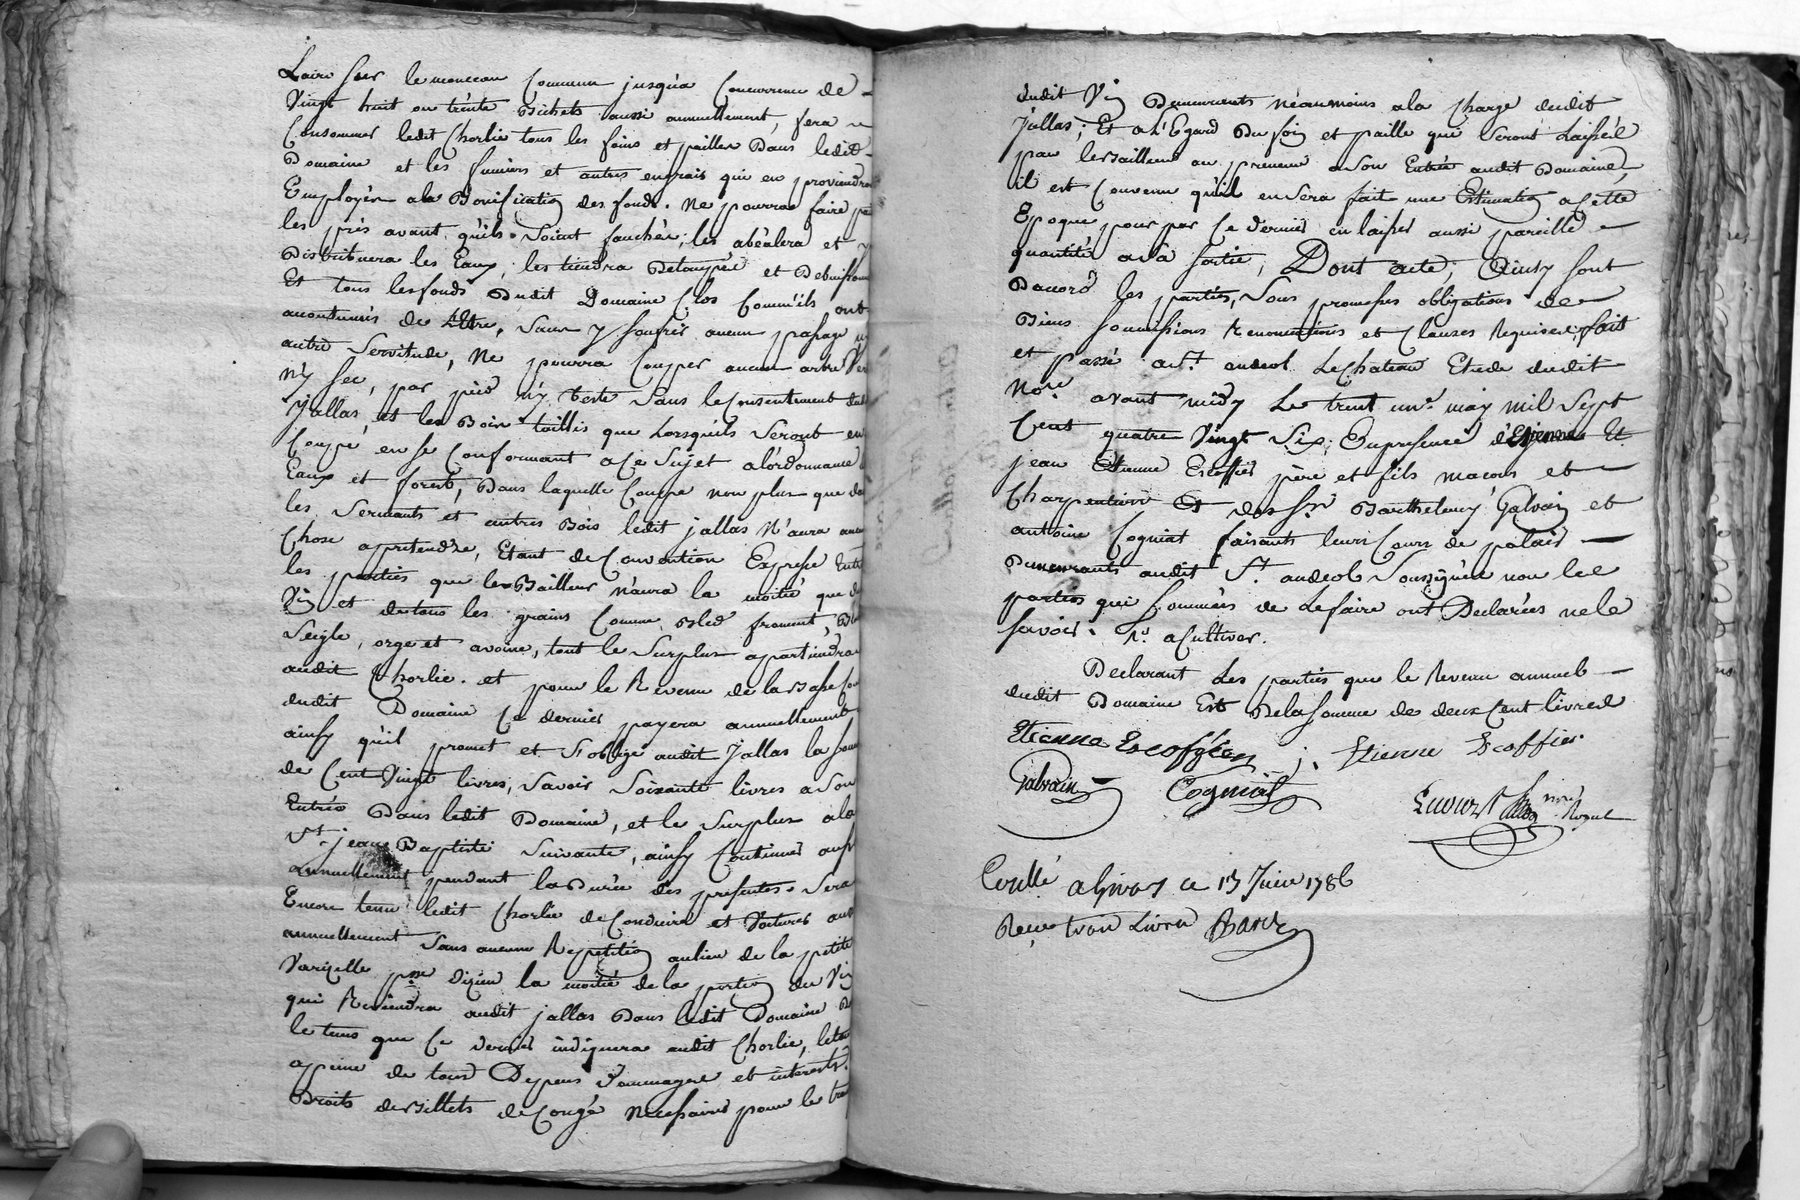 Laire sur le monceau Commun jusqua Concurrence de
Vingt huit ou trente Bichets aussi annuellement, fera
Consommer ledit Chorlie tous les foins et pailles Dans ledit
Domaine et les fumiers et autres engrais qui en proviendront
Employés ala Bonification des fonds. Ne pourra faire
les prés avant qu'ils soient fauchés; les abéalera et y
Distribuera les Eaux, les tiendra Detaupés et Debuissonnés
Et tous les fonds Dudit Domaine Clos Comm'ils ont
acoutumés de Letre, Sans y soufrir aucun passage
autre Servitude, Ne pourra Couper aucun arbre
N'y sec, par pied N'y teste Sans le Consentement dudit
Jallas, et les Bois taillis que Lorsqu'ils Seront en
Coupe en se Conformant a ce Sujet al'ordonnance
Eaux et forest, Dans laquelle Coupe non plus que dans
les Serments et autres Bois ledit jallas N'aura aucune
Chose apretendre, Etant de Convention Expresse Entre
les parties que le Bailleur n'aura la moitié que du
Vin et de tous les grains Comme Bled froment,
Seigle, orge et avoine, tout le Surplus apartiendra
audit Chorlie. et pour le Revenu de la Basse
dudit Domaine Ce dernier payera annuellement
ainsy qu'il promet et s'oblige audit Jallas la somme
de Cent Vingt livres, Savoir Soixante livres a Son
Entrée Dans ledit Domaine, et le Surplus ala
St. jean Baptiste Suivante, ainsy Continuer aussi
annuellement pendant la Durée des presentes. Sera
Encore tenu ledit Chorlie de Conduire et Voiturer aussi
annuellement Sans aucune Repetition au lieu de la petite
Varizelle psse. Dizieu la moitié de la portion du Vin
qui Reviendra audit jallas Dans ledit Domaine
le tems que Ce dernier indiquera audit Chorlie,
apeine de tous Depens Dommages et interests.
Droits de Billets de Congé Necessaires pour le
dudit Vin Demeurants néanmoins ala Charge dudit
Jallas; Et a L'Egard Du foin et paille qui Seront Laissés
par le Bailleur au preneur a Son Entrée audit Domaine,
il est Convenu qu'il en Sera fait une Estimation a Cette
Epoque pour par Ce dernier en laisser aussi pareille
quantité a Sa Sortie, Dont acte, Ainsy Sont
Daccord les parties, Sous promesses obligations de
Biens Soumissions Renonciations et Clauses Requises, fait
et passé a St. andeol Le Chateau Etude dudit
Nore. avant midy Le trent une. may Mil Sept
Cent quatre Vingt Six: En presence d'Etienne Et
jean Etienne Escoffier père et fils macons et
Charpentiers Et des srs. Barthelemy Galvain et
antoine Cogniat faisants leurs Cours de palais
Demeurants audit St. andeol Soussignés non les
parties qui Sommées de Le faire ont Declarées ne le
Savoir. Rt. a Cultiver.
Declarant Les parties que le Revenu annuel
dudit Domaine Est Dela Somme de deux Cent livres
Etienne Escoffier j. Etienne Escoffier
Galvain Cogniat
Conllé a Givors ce 13 Juin 1786
Reçu trois Livres